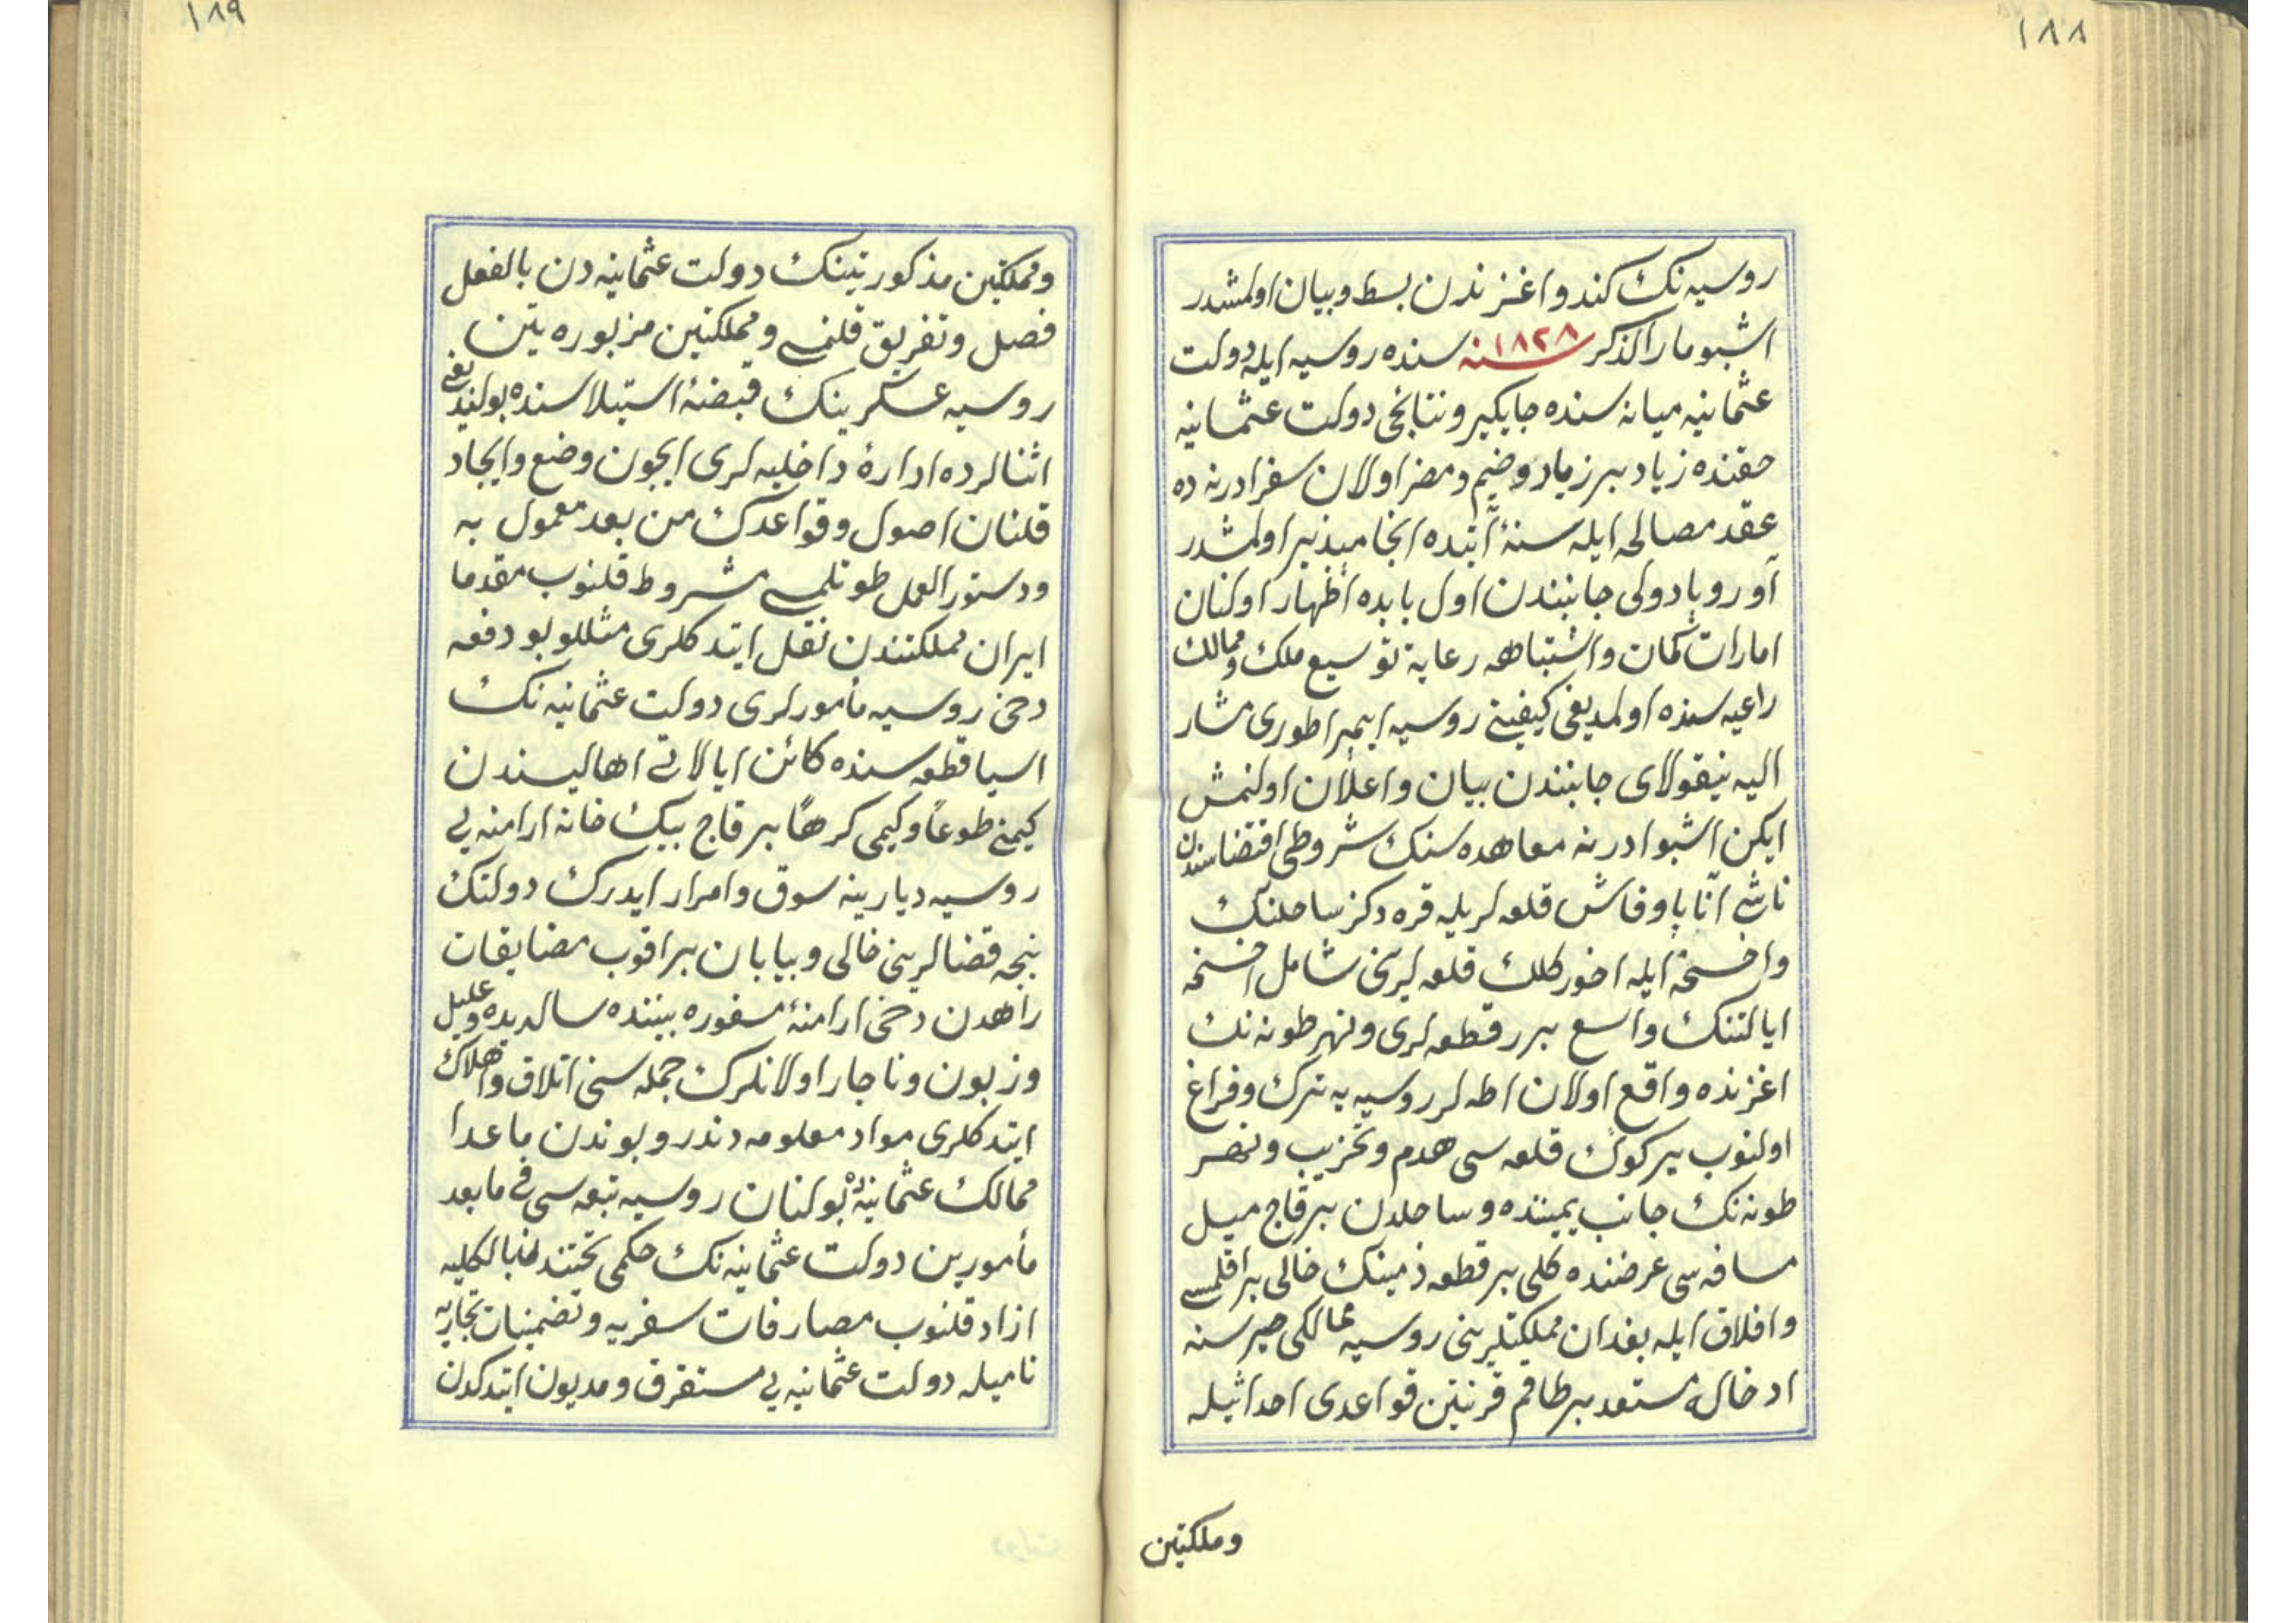 ١٨٨
روسیه نك كندو اغزندن بسط وبیان اولمشدر
اشبو مارالذكر ١٨٢٨ سنه سنده روسیه ایله دولت
عثمانیه میانه سنده جایكیر ونتایجی دولت عثمانیه
حقنده زیاد بر زیاد وخیم ومضر اولان سفر ادرنه ده
عقد مصالحه ایله سنۀ آتیده انجامپذیر اولمشدر
آوروپا دولی جانبندن اول بابده اظهار اولنان
امارات كمان واشتباهه رعایة توسیع ملك وممالك
راعیه سنده اولمدیغی كیفیتی روسیه ایمپراطوری مشار
الیه نیقولای جانبندن بیان واعلان اولنمش
ایكن اشبو ادرنه معاهده سنك شروطی اقتضاسندن
ناشی آناپا وفاش قلعه لریله قره دكز ساحلنك
واخسخه ایله اخوركلك قلعه لرینی شامل اخسخه
ایالتنك واسع برر قطعه لری ونهر طونه نك
اغزنده واقع اولان اطه لر روسیه یه ترك وفراغ
اولنوب یركوك قلعه سی هدم وتخریب ونهر
طونه نك جانب یمیننده وساحلدن بر قاچ میل
مسافه سی عرضنده كلی بر قطعه زمینك خالی براقلمسی
وافلاق ایله بغدان مملكتلرینی روسیه ممالكی حیرسنه
ادخاله مستعد بر طاقم قرنتین قواعدی احداثیله
ومملكتین
١٨٩
ومملكتین مذكورتینك دولت عثمانیه دن بالفعل
فصل وتفریق قلنمسی ومملكتین مزبوره تین
روسیه عسكرینك قبضۀ استیلاسنده بولندیغی
اثنالرده ادارۀ داخلیه لری ایچون وضع وایجاد
قلنان اصول وقواعدك من بعد معمول به
ودستور العمل طوتلمسی مشروط قلنوب مقدما
ایران مملكتندن نقل ایتدكلری مثللو بو دفعه
دخی روسیه مأمورلری دولت عثمانیه نك
اسیا قطعه سنده كائن ایالاتی اهالیسندن
كیمنی طوعاً وكیمی كرهاً بر قاچ بیك خانه ارامنه یی
روسیه دیارینه سوق وامرار ایدرك دولتك
نیجه قضالرینی خالی وبیابان براقوب مضایقات
راهدن دخی ارامنۀ مسفوره بیننده سالدیده وعلیل
وزبون وناچار اولانلرك جمله سنی اتلاف واهلاك
ایتدكلری مواد معلومه دندر وبوندن ماعدا
ممالك عثمانیه ده بولنان روسیه تبعه سی فی مابعد
مأمورین دولت عثمانیه نك حكمی تحتندن بالكلیه
ازاد قلنوب مصارفات سفریه وتضمینات تجاریه
نامیله دولت عثمانیه یی مستغرق ومدیون ایتدكدن